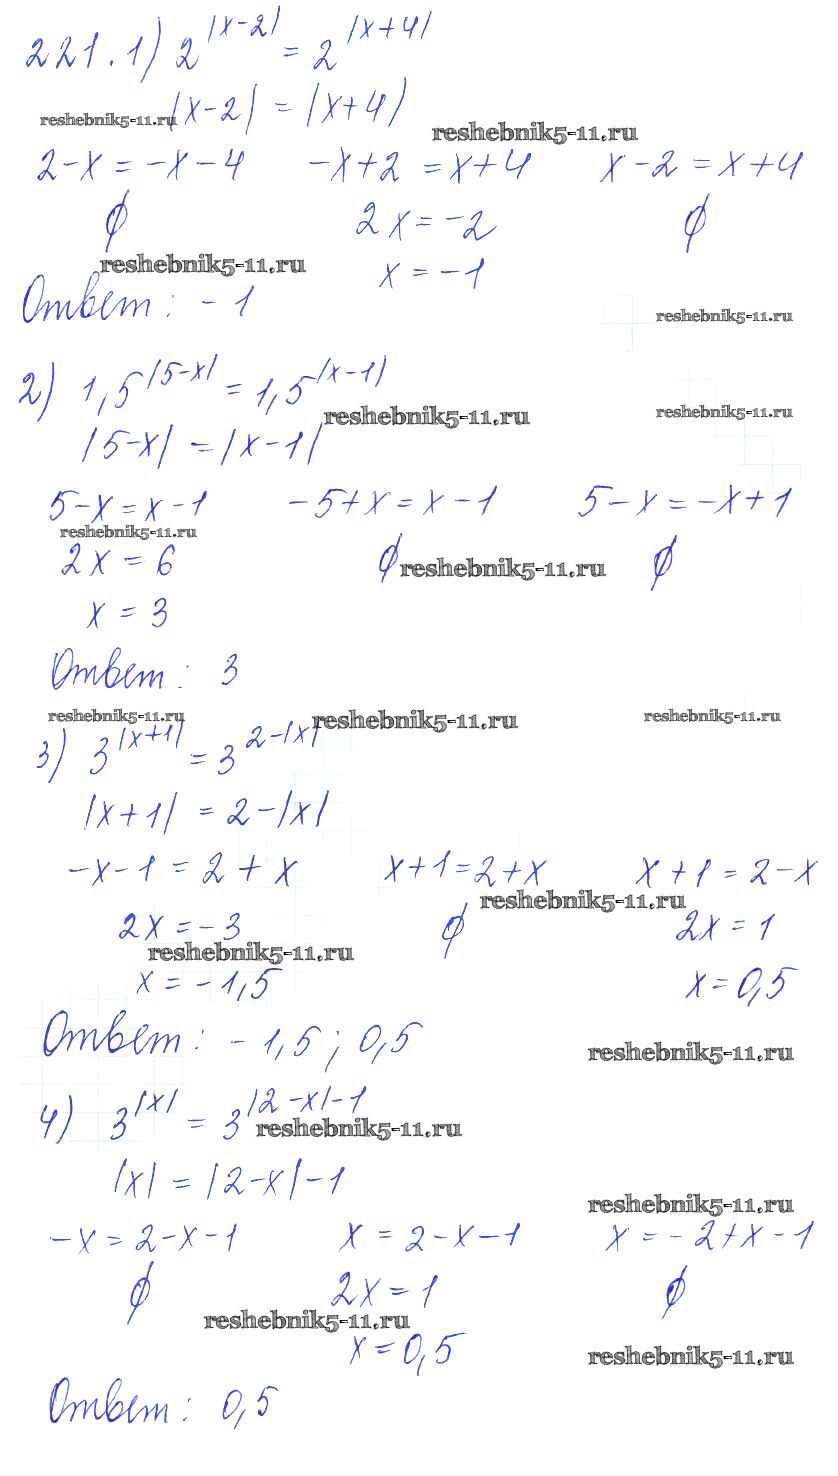 221. 1) 2^|x-2| = 2^|x+4|
reshebnik5-11.ru |x-2| = |x+4|
reshebnik5-11.ru
2-x = -x-4 -x+2 = x+4 x-2 = x+4
∅ 2x = -2 ∅
reshebnik5-11.ru x = -1
Ответ: -1
reshebnik5-11.ru
2) 1,5^|5-x| = 1,5^|x-1|
reshebnik5-11.ru reshebnik5-11.ru
|5-x| = |x-1|
5-x = x-1 -5+x = x-1 5-x = -x+1
reshebnik5-11.ru
2x = 6 ∅ reshebnik5-11.ru ∅
x = 3
Ответ: 3
reshebnik5-11.ru reshebnik5-11.ru reshebnik5-11.ru
3) 3^|x+1| = 3^2-|x|
|x+1| = 2-|x|
-x-1 = 2+x x+1 = 2+x x+1 = 2-x
reshebnik5-11.ru
2x = -3 ∅ 2x = 1
reshebnik5-11.ru
x = -1,5 x = 0,5
Ответ: -1,5; 0,5
reshebnik5-11.ru
4) 3^|x| = 3^|2-x|-1
reshebnik5-11.ru
|x| = |2-x|-1
reshebnik5-11.ru
-x = 2-x-1 x = 2-x-1 x = -2+x-1
∅ 2x = 1 ∅
reshebnik5-11.ru
x = 0,5
reshebnik5-11.ru
Ответ: 0,5